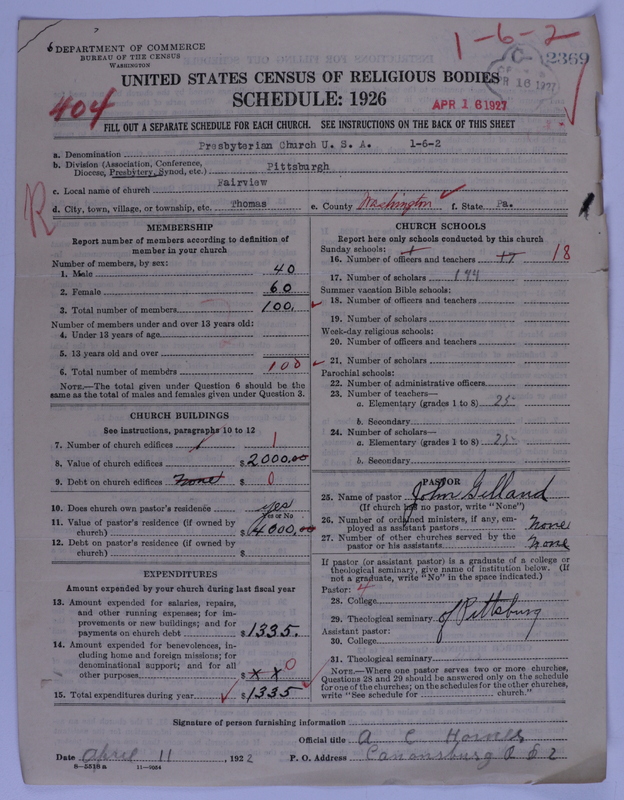 DEPARTMENT OF COMMERCE
BUREAU OF THE CENSUS
WASHINGTON
1-6-2
2369
UNITED STATES CENSUS OF RELIGIOUS BODIES
SCHEDULE: 1926
404
APR 16 1927
FILL OUT A SEPARATE SCHEDULE FOR EACH CHURCH. SEE INSTRUCTIONS ON THE BACK OF THIS SHEET
a. Denomination Presbyterian Church U. S. A. 1-6-2
b. Division (Association, Conference, Diocese, Presbytery, Synod, etc.) Pittsburgh
c. Local name of church Fairview
d. City, town, village, or township, etc. Thomas e. County Washington f. State Pa.
R
MEMBERSHIP
Report number of members according to definition of
member in your church
Number of members, by sex:
1. Male 40
2. Female 60
3. Total number of members 100.
Number of members under and over 13 years old:
4. Under 13 years of age
5. 13 years old and over
6. Total number of members 100
NOTE.—The total given under Question 6 should be the
same as the total of males and females given under Question 3.
CHURCH BUILDINGS
See instructions, paragraphs 10 to 12
7. Number of church edifices 1 1
8. Value of church edifices $ 2000.00
9. Debt on church edifices None $ 0
10. Does church own pastor's residence? yes
Yes or No
11. Value of pastor's residence (if owned by
church) $ 4000.00
12. Debt on pastor's residence (if owned by
church) $
EXPENDITURES
Amount expended by your church during last fiscal year
13. Amount expended for salaries, repairs,
and other running expenses; for im-
provements or new buildings; and for
payments on church debt $ 1335.
14. Amount expended for benevolences, in-
cluding home and foreign missions; for
denominational support; and for all
other purposes $ x x 0
15. Total expenditures during year $ 1335
CHURCH SCHOOLS
Report here only schools conducted by this church
Sunday schools: 1
16. Number of officers and teachers 17 18
17. Number of scholars 144
Summer vacation Bible schools:
18. Number of officers and teachers
19. Number of scholars
Week-day religious schools:
20. Number of officers and teachers
21. Number of scholars
Parochial schools:
22. Number of administrative officers
23. Number of teachers—
a. Elementary (grades 1 to 8) 25
b. Secondary
24. Number of scholars—
a. Elementary (grades 1 to 8) 25
b. Secondary
PASTOR
25. Name of pastor John Gilland
(If church has no pastor, write "None")
26. Number of ordained ministers, if any, em-
ployed as assistant pastors None
27. Number of other churches served by the
pastor or his assistants None
If pastor (or assistant pastor) is a graduate of a college or
theological seminary, give name of institution below. (If
not a graduate, write "No" in the space indicated.)
Pastor: 4
28. College
29. Theological seminary of Pittsburg
Assistant pastor:
30. College
31. Theological seminary
NOTE.—Where one pastor serves two or more churches,
Questions 28 and 29 should be answered only on the schedule
for one of the churches; on the schedules for the other churches,
write "See schedule for church."
Signature of person furnishing information
Official title A C
Date April 11, 1922 P. O. Address Canonsburg R D 2
8-5518a 11-9034